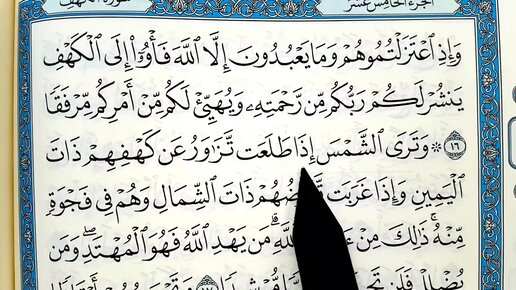 الجزء الخامس عشر
سورة الكهف
وَإِذِ ٱعْتَزَلْتُمُوهُمْ وَمَا يَعْبُدُونَ إِلَّا ٱللَّهَ فَأْوُۥٓا۟ إِلَى ٱلْكَهْفِ
يَنشُرْ لَكُمْ رَبُّكُم مِّن رَّحْمَتِهِۦ وَيُهَيِّئْ لَكُم مِّنْ أَمْرِكُم مِّرْفَقًا
١٦ ۞ وَتَرَى ٱلشَّمْسَ إِذَا طَلَعَت تَّزَٰوَرُ عَن كَهْفِهِمْ ذَاتَ
ٱلْيَمِينِ وَإِذَا غَرَبَت ضُهُمْ ذَاتَ ٱلشِّمَالِ وَهُمْ فِى فَجْوَةٍ
مِّنْهُ ۚ ذَٰلِكَ مِنْ ٱللَّهِ ۗ مَن يَهْدِ ٱللَّهُ فَهُوَ ٱلْمُهْتَدِ ۖ وَمَن
يُضْلِلْ فَلَن